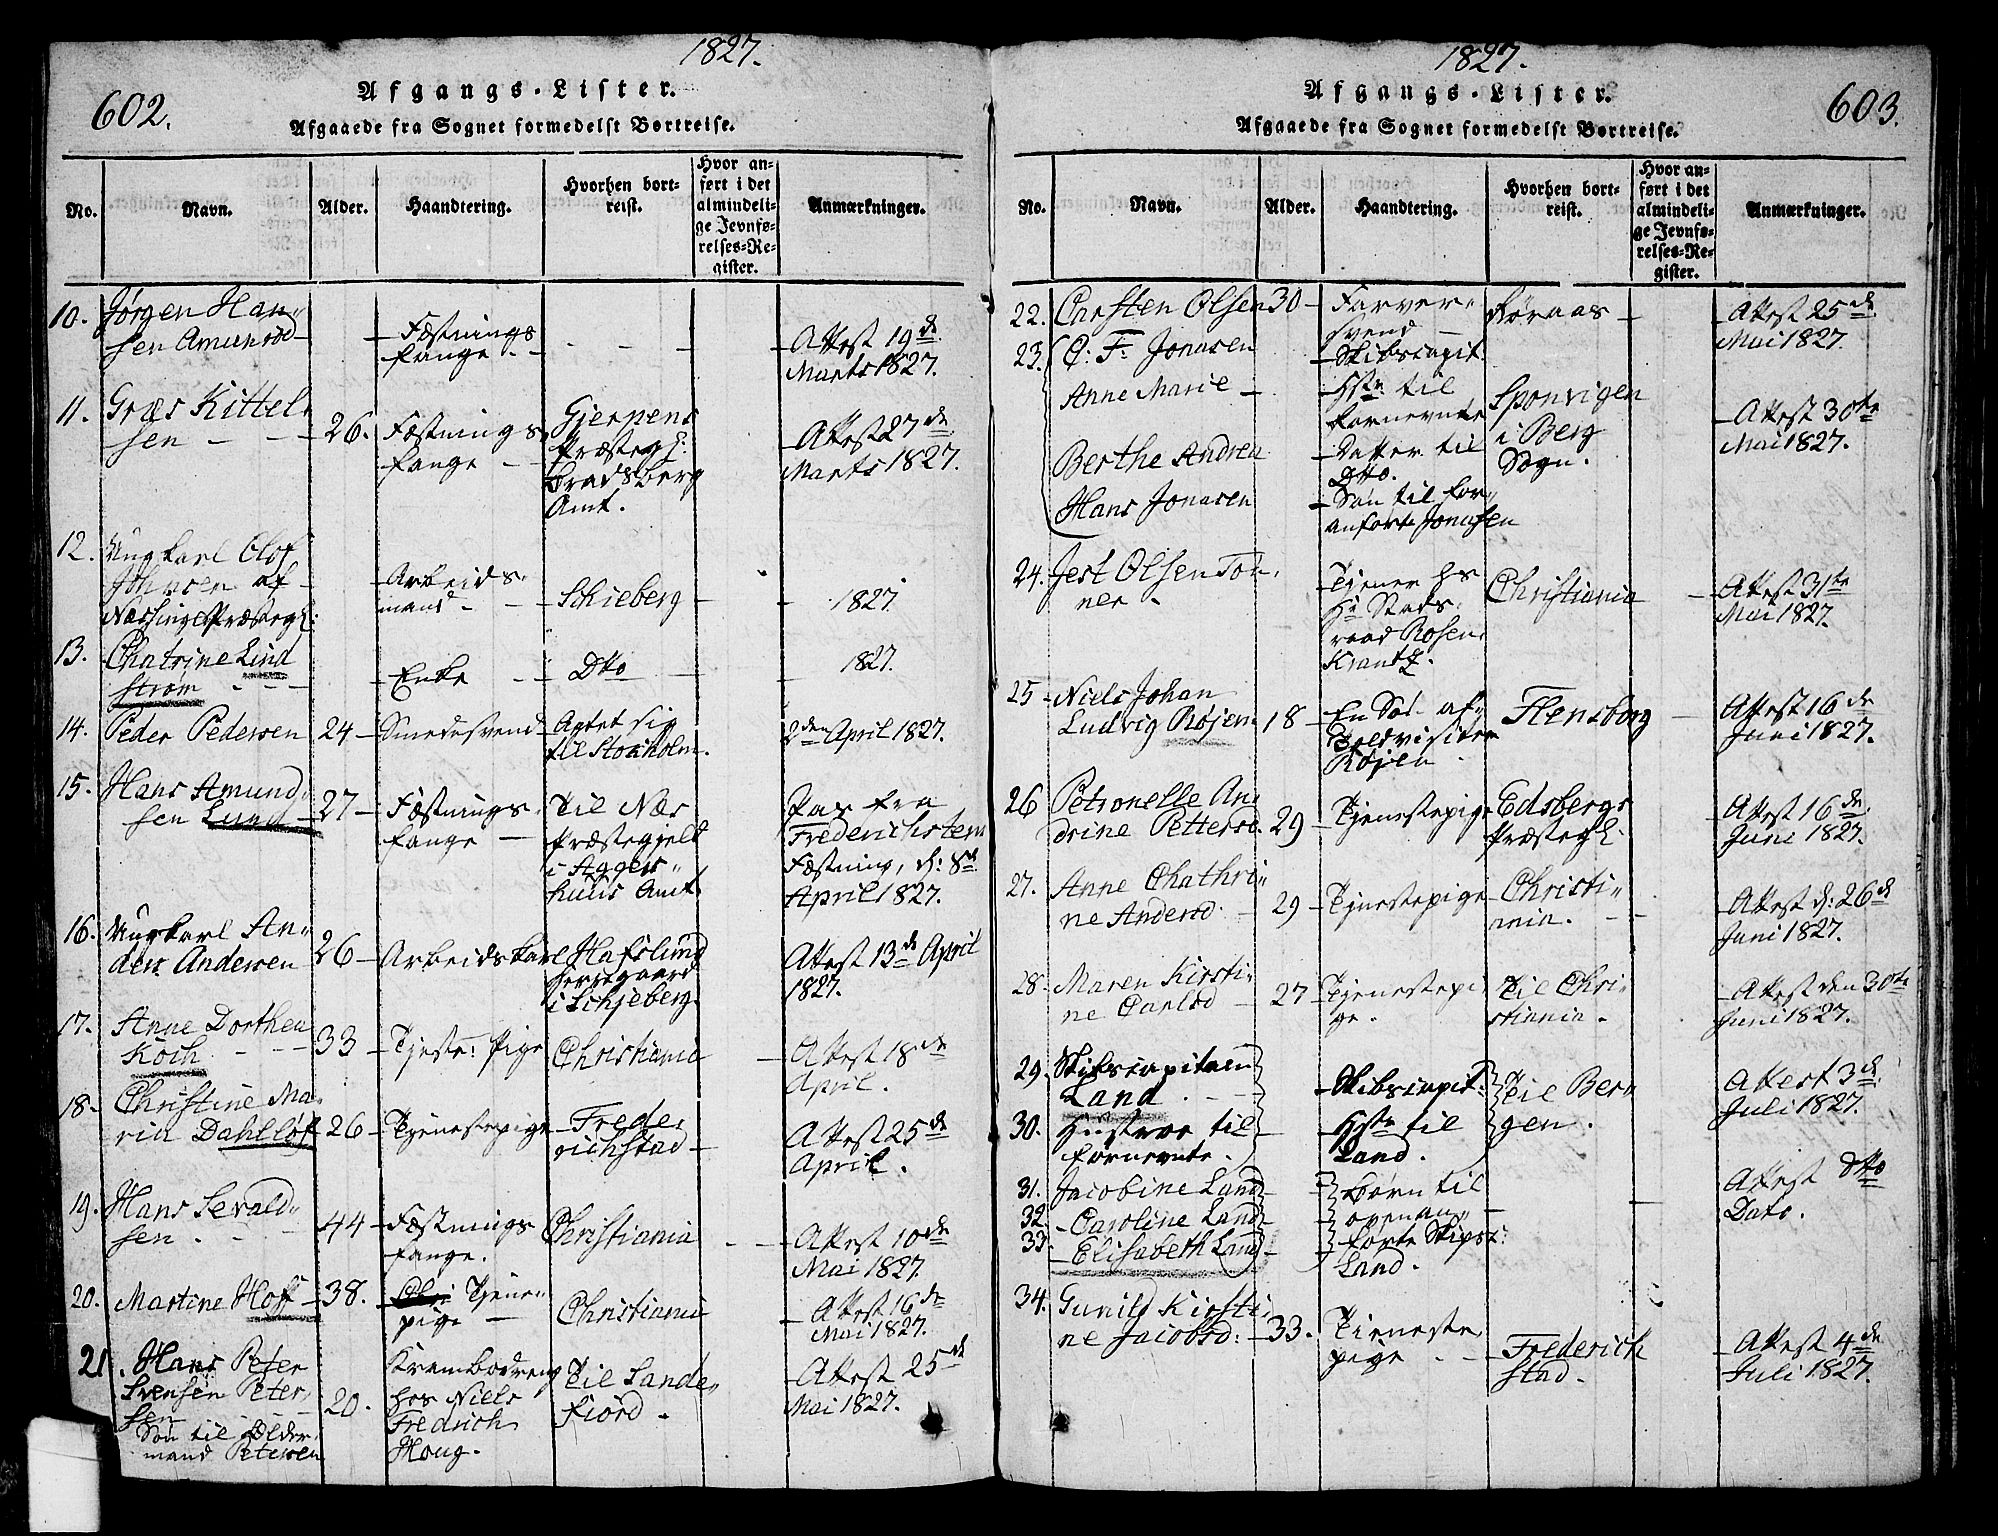 1827.
602.
Afgangs-Lister.
Afgaaede fra Sognet formedelst Bortreise.
No.
Navn.
Alder.
Haandtering.
Hvorhen bort-
reist.
Hvor an-
ført i det
almindeli-
ge Jevnfø-
relses-Re-
gister.
Anmærkninger.
10. Jørgen Han-
sen Amunrød
Fæstnings
fange
Attest 19de
Marts 1827.
11. Græs Kittel-
sen
26.
Fæstnings
fange
Gjerpens
Præstegl:
Bradsberg
Amt.
Attest 27de
Marts 1827.
12. Ungkarl Olof
Johnsen af
Næssinge Præstegl:
Arbeids-
mand
Schieberg
1827.
13. Chatrine Lind
strøm
Enke
Dtto
1827.
14. Peder Pedersen
24
Smedesvend
Agtet sig
til Stockholm.
2den April 1827.
15. Hans Amund-
sen Lund
27
Fæstnings-
fange
Til Næs
Præstegjeld
i Agger-
huus Amt
Pas fra
Frederichsten
Fæstning, d: 8de
April 1827.
16. Ungkarl An-
ders Andersen
26
Arbeidskarl
Hafslund
herregaard
i Schjeberg
Attest 13de April
1827.
17. Anne Dorthea
Koch
33
Tjeste: Pige
Christiania
Attest 18de
April.
18. Christine Ma-
ria Dahlløf
26
Tjenestepige
Frede-
richstad
Attest 25de
April.
19. Hans Sevald-
sen.
44
Fæstnings
fange.
Christiania
Attest 10de
Mai 1827.
20. Martine Hoff
38.
Tjene-
pige
Christiania
Attest 16de
Mai 1827.
21. Hans Peter
Svensen Peter-
sen
Søn til Older-
mand Petersen
20.
Krambodreng
hos Niels
Fredrich
Houg.
Til Sande-
fiord.
Attest 25de
Mai 1827.
1827.
603.
Afgangs-Lister.
Afgaaede fra Sognet formedelst Bortreise.
No.
Navn.
Alder.
Haandtering.
Hvorhen bort-
reist.
Hvor an-
ført i det
almindeli-
ge Jevnfø-
relses-Re-
gister.
Anmærkninger.
22. Chrsten Olsen
30
Farver-
svend
Røraas
Attest 25de
Mai 1827.
23. C: F: Jonasen
Skibscapit.
Anne Marie
Hstr til
fornevnte
Berthe Andrea
Datter til
Dtto.
Hans Jonasen
Søn til for-
anførte Jonasen
Sponvigen
i Berg
Sogn.
Attest 30te
Mai 1827.
24. Jest Olsen Ton-
ner
Tjener hs
Hr Stads-
raad Rosen-
Krantz.
Christiania
Attest 31te
Mai 1827.
25 Niels Johan
Ludvig Røjen
18
En Søn af
Toldvisiteur
Røjen
Flensborg
Attest 16de
Juni 1827.
26 Petronelle An-
drine Petters.
29
Tjenestepige
Edsbergs
Præstegl
Attest 16de
Juni 1827.
27. Anne Chathri-
ne Andersd.
29
Tjenestepige
Christi-
ania.
Attest d: 26d
Juni 1827.
28. Maren Kirsti-
ne Carlsd
27
Tjenestepi-
ge.
Til Chri-
stiania.
Attest den 30te
Juni 1827.
29. Skibscapitain
Land
Skibscapit:
Til Ber-
gen.
Attest 3de
Juli 1827.
30. Hustroe til
fornevnte.
Hstr til
Land.
31. Jacobine Land
32. Caroline Land
33. Elisabeth Land
Børn til
ovenan-
førte Skips:
Land.
Attest dtto
Dato.
34. Gunild Kirsti-
ne Jacobsd:
33.
Tieneste
pige
Frederich
stad.
Attest 4de
Juli 1827.